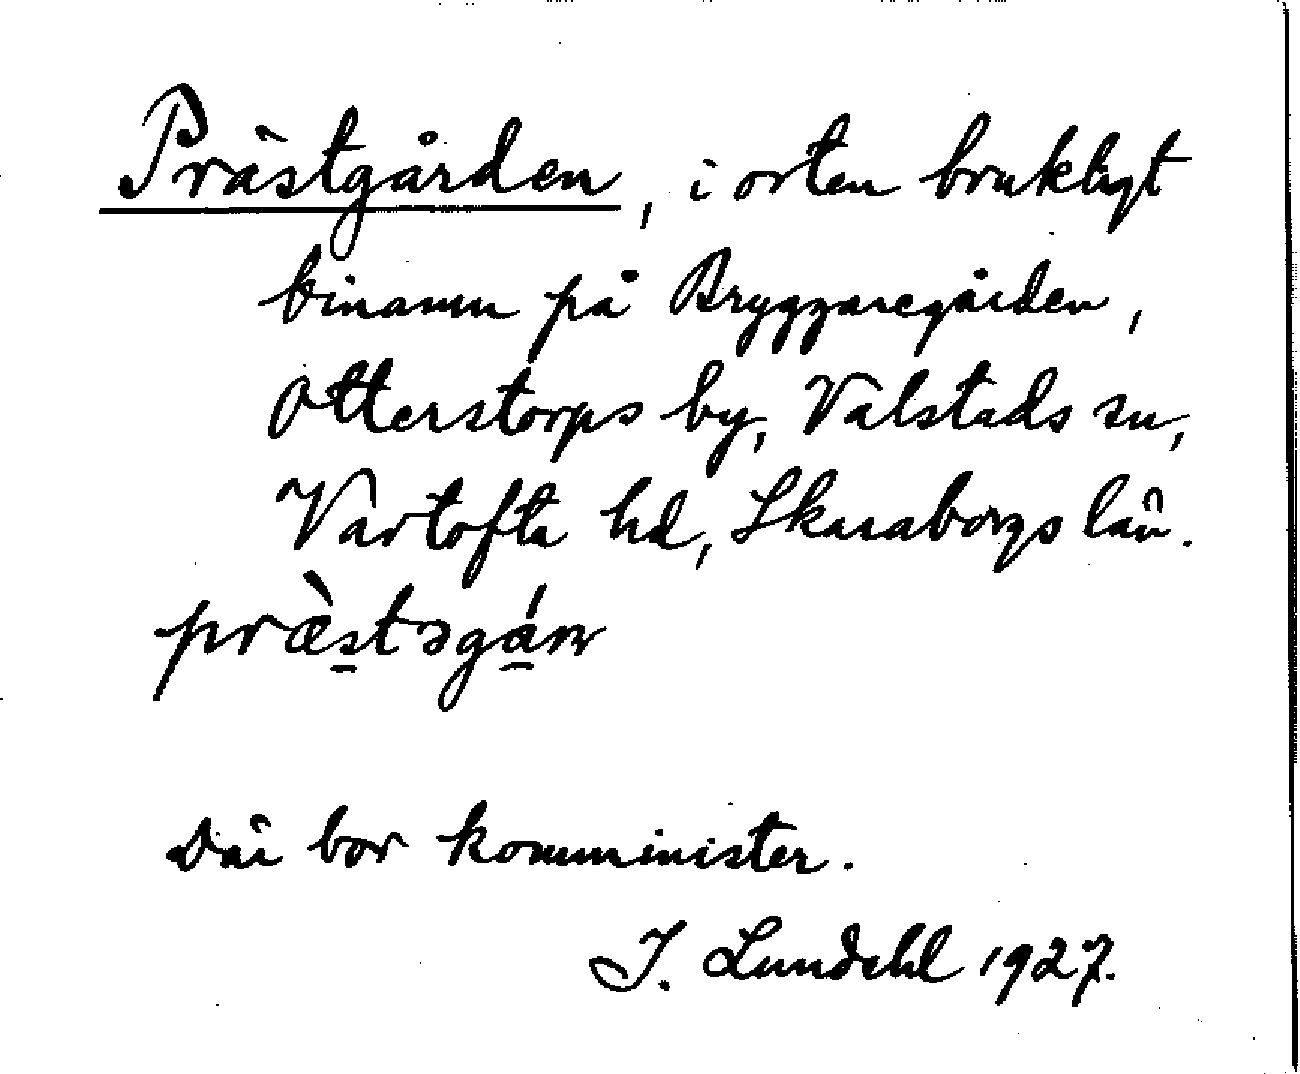 Prästgården, i orten brukligt
binamn på Bryggaregården,
Otterstorps by, Valstads sn,
Vartofta hd, Skaraborgs län.
præ̀stəgán
Där bor komminister.
J. Lundahl 1927.